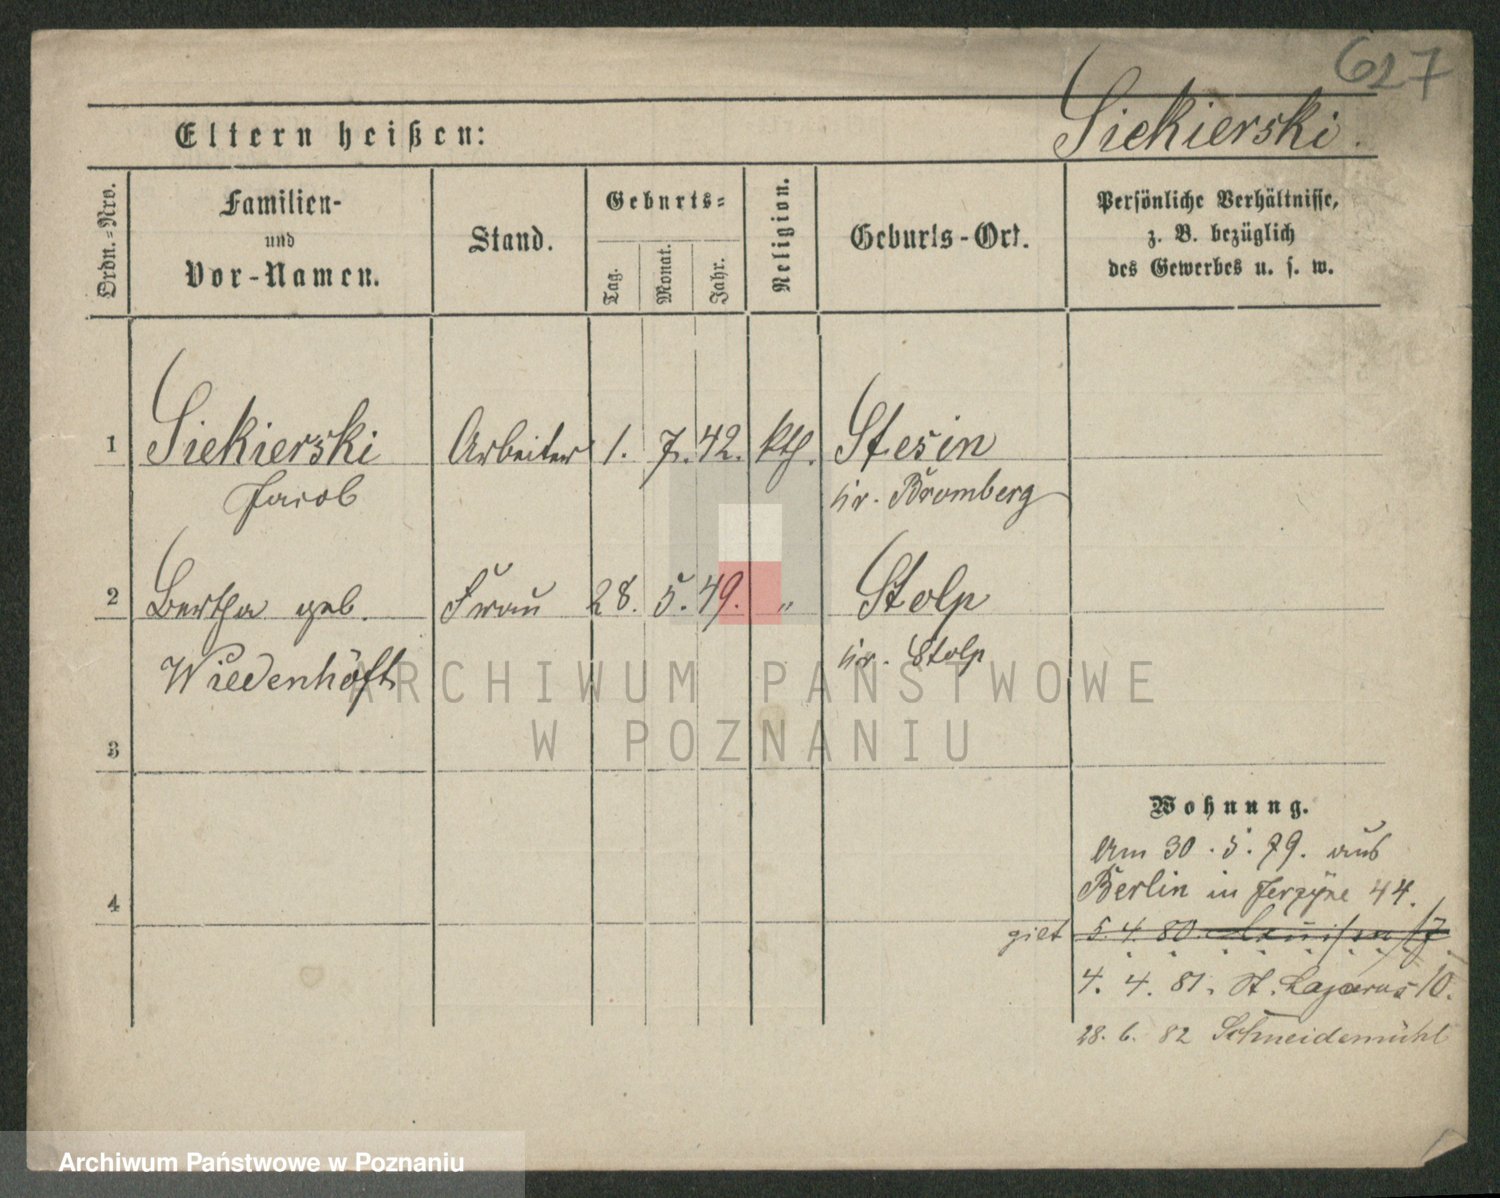 627
Siekierski.
Eltern heißen:
Ordn.-Nro.
Familien-
und
Vor-Namen.
Stand.
Geburts-
Tag.
Monat.
Jahr.
Religion.
Geburts-Ort.
Persönliche Verhältnisse,
z. B. bezüglich
des Gewerbes u. s. w.
1 Siekierski Arbeiter 1. 7. 42. kth. Stesin
Jacob Kr. Bromberg
2 Bertha geb. Frau 28. 5. 49. " Stolp
Wiedenhöft Kr. Stolp
ARCHIWUM PAŃSTWOWE
W POZNANIU
3
Wohnung.
Am 30. 5. 79. aus
Berlin in Jerzyce 44.
4
gilt 5. 4. 80.
4. 4. 81. St. Lazarus 10.
28. 6. 82 Schneidemühl
Archiwum Państwowe w Poznaniu